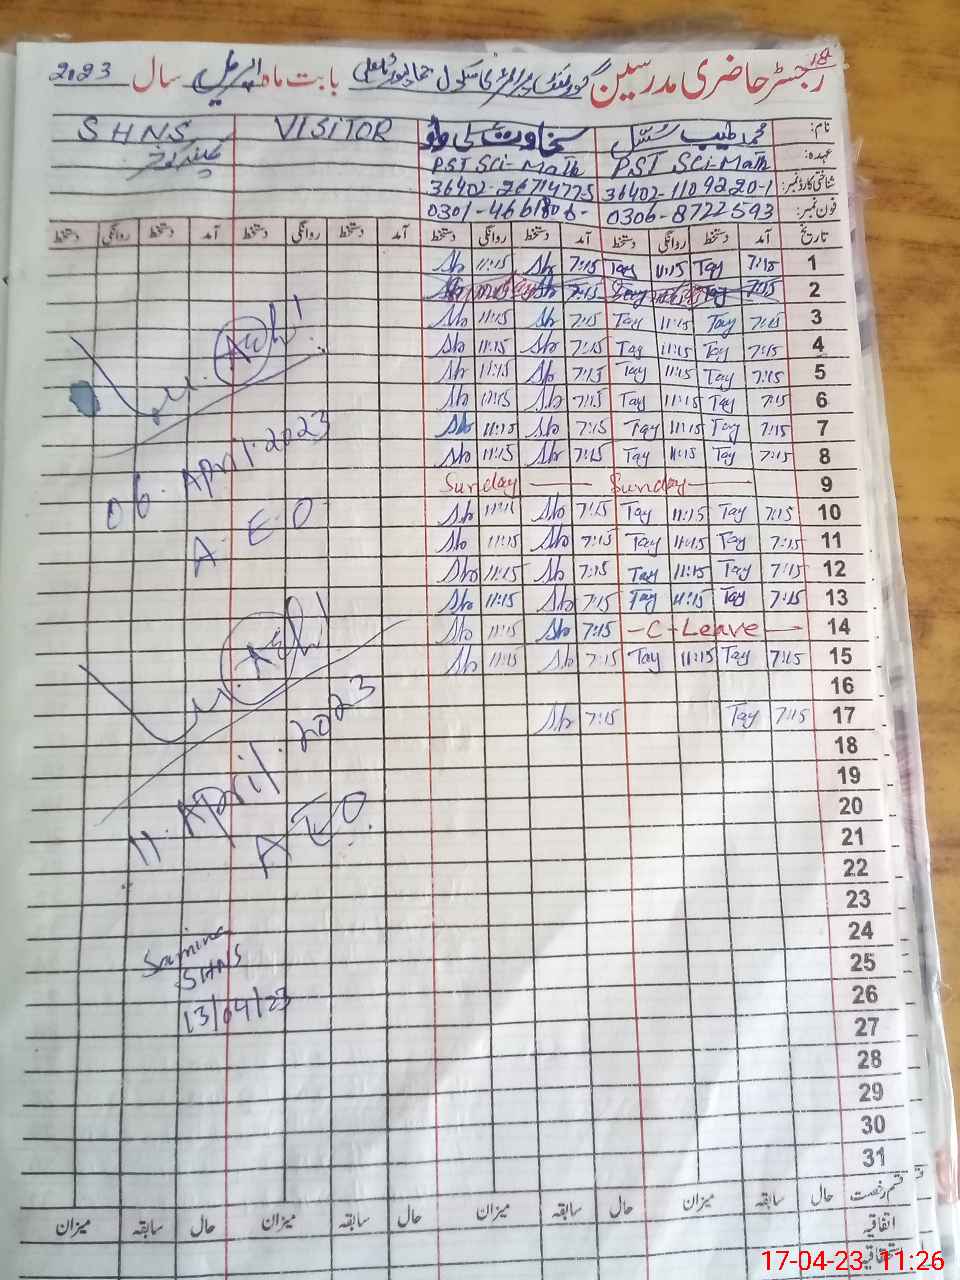 رجسٹر حاضری مدرسین گورنمنٹ پرائمری سکول بابت ماہ اپریل سال 2023
نام: محمد طیب سخاوت علی VISITOR SHNS
عہدہ: PST Sci-Math PST Sci-Math
شناختی کارڈ نمبر: 36402-1109220-1 36402-2671477-5
فون نمبر: 0306-8722593 0301-4661806-
تاریخ آمد دستخط روانگی دستخط آمد دستخط روانگی دستخط آمد دستخط روانگی دستخط آمد دستخط روانگی دستخط
1 7:15 Tay 11:15 Tay 7:15 Sh 11:15 Sh
2 7:15 Tay Tay 7:15 Sh Sh
3 7:15 Tay 11:15 Tay 7:15 Sh 11:15 Sh
4 7:15 Tay 11:15 Tay 7:15 Sh 11:15 Sh
5 7:15 Tay 11:15 Tay 7:15 Sh 11:15 Sh
6 7:15 Tay 11:15 Tay 7:15 Sh 11:15 Sh
7 7:15 Tay 11:15 Tay 7:15 Sh 11:15 Sh
8 7:15 Tay 11:15 Tay 7:15 Sh 11:15 Sh
9 Sunday Sunday
10 7:15 Tay 11:15 Tay 7:15 Sh 11:15 Sh
11 7:15 Tay 11:15 Tay 7:15 Sh 11:15 Sh
12 7:15 Tay 11:15 Tay 7:15 Sh 11:15 Sh
13 7:15 Tay 11:15 Tay 7:15 Sh 11:15 Sh
14 -C-Leave 7:15 Sh 11:15 Sh
15 7:15 Tay 11:15 Tay 7:15 Sh 11:15 Sh
16
17 7:15 Tay 7:15 Sh
18
19
20
21
22
23
24
25
26
27
28
29
30
31
06 April 2023
A E O
11 April 2023
A E O
Samina
SHNS
13/04/23
قسم رخصت حال سابقہ میزان حال سابقہ میزان حال سابقہ میزان حال سابقہ میزان
اتفاقیہ
استحقاقیہ
17-04-23 11:26